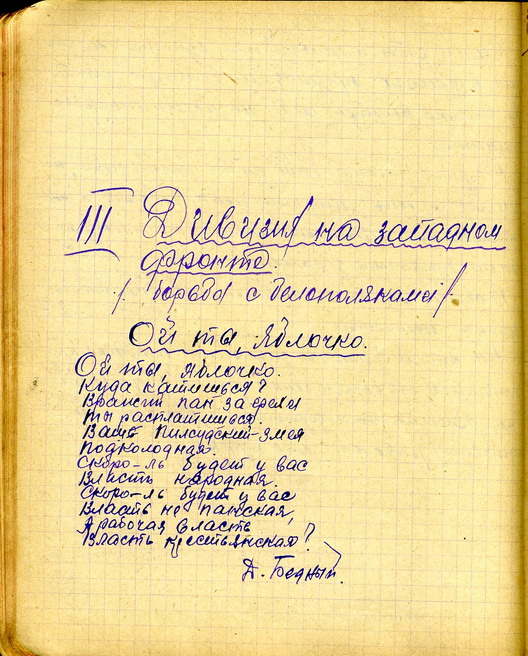 III Дивизия на западном
фронте.
/ борьба с белополяками /
Ой ты, яблочко.
Ой ты, яблочко.
Куда катишься?
Вражий пан за
ты расплатишься.
Ваш Пилсудский-змея
подколодная.
Скоро-ль будет у вас
Власть народная.
Скоро-ль будет у вас
Власть не панская,
А рабочая власть
Власть крестьянская?
Д. Бедный.